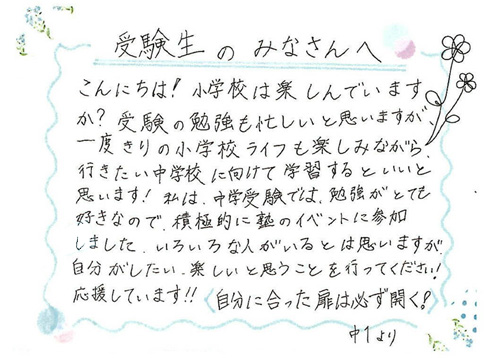 受験生のみなさんへ
こんにちは！小学校は楽しんでいます
か？受験の勉強も忙しいと思いますが、
一度きりの小学校ライフも楽しみながら、
行きたい中学校に向けて学習するといいと
思います！私は、中学受験では、勉強がとても
好きなので、積極的に塾のイベントに参加
しました。いろいろな人がいるとは思いますが、
自分がしたい、楽しいと思うことを行ってください！
応援しています!!〈自分に合った扉は必ず開く？
中1より